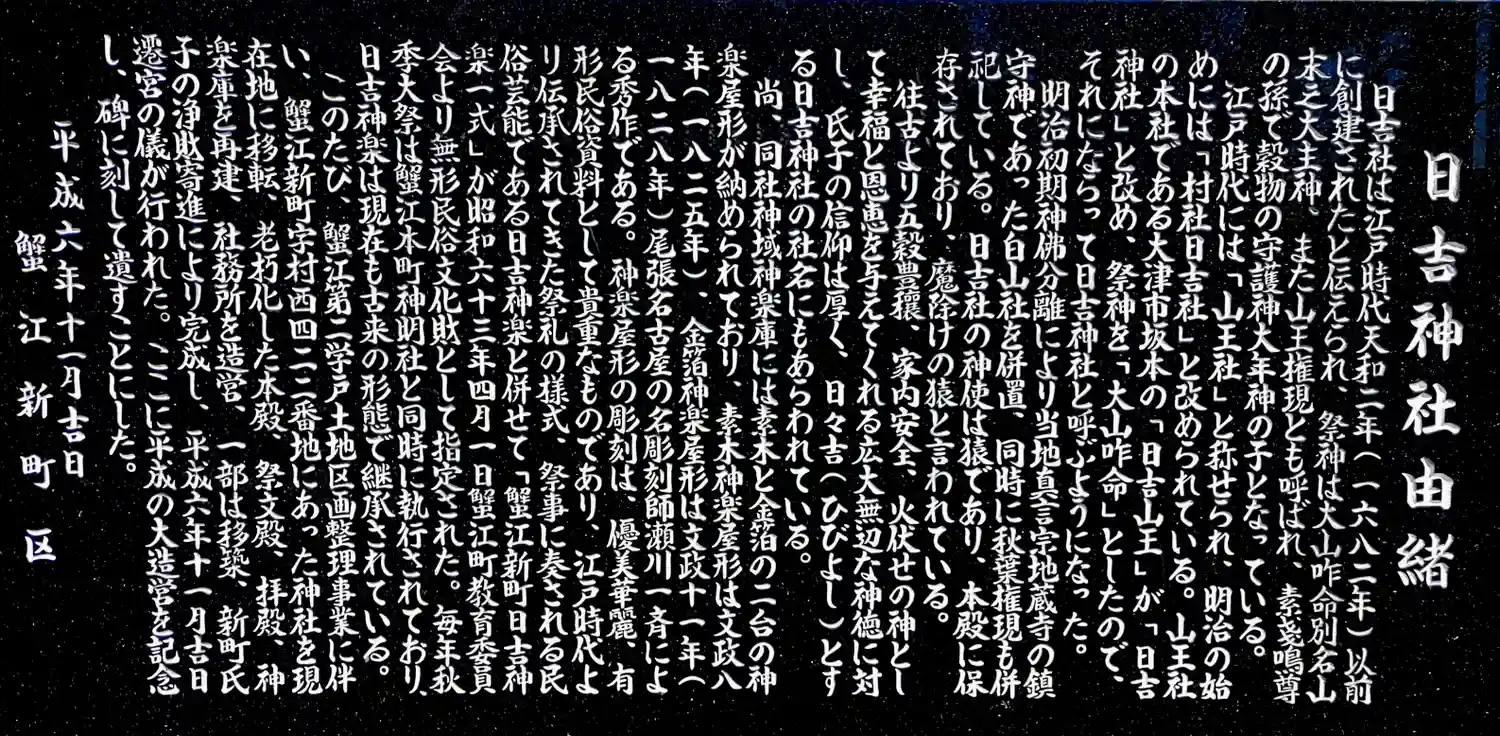 日吉神社由緒
日吉社は江戸時代天和二年(一六八二年)以前
に創建されたと伝えられ、祭神は大山咋命別名山
末之大主神、また山王権現とも呼ばれ、素盞鳴尊
の孫で穀物の守護神大年神の子となっている。
江戸時代には「山王社」と称せられ、明治の始
めには「村社日吉社」と改められている。山王社
の本社である大津市坂本の「日吉山王」が「日吉
神社」と改め、祭神を「大山咋命」としたので、
それにならって日吉神社と呼ぶようになった。
明治初期神佛分離により当地真言宗地蔵寺の鎮
守神であった白山社を併置、同時に秋葉権現も併
祀している。日吉社の神使は猿であり、本殿に保
存されており、魔除けの猿と言われている。
往古より五穀豊穰、家内安全、火伏せの神とし
て幸福と恩恵を与えてくれる広大無辺な神徳に対
し、氏子の信仰は厚く、日々吉(ひびよし)とす
る日吉神社の社名にもあらわれている。
尚、同社神域神楽庫には素木と金箔の二台の神
楽屋形が納められており、素木神楽屋形は文政八
年(一八二五年)、金箔神楽屋形は文政十一年(
一八二八年)尾張名古屋の名彫刻師瀬川一斉によ
る秀作である。神楽屋形の彫刻は、優美華麗、有
形民俗資料として貴重なものであり、江戸時代よ
り伝承されてきた祭礼の様式、祭事に奏される民
俗芸能である日吉神楽と併せて「蟹江新町日吉神
楽一式」が昭和六十三年四月一日蟹江町教育委員
会より無形民俗文化財として指定された。毎年秋
季大祭は蟹江本町神明社と同時に執行されており、
日吉神楽は現在も古来の形態で継承されている。
このたび、蟹江第二学戸土地区画整理事業に伴
い、蟹江新町字村西四二二番地にあった神社を現
在地に移転、老朽化した本殿、祭文殿、拝殿、神
楽庫を再建、社務所を造営、一部は移築、新町氏
子の浄財寄進により完成し、平成六年十一月吉日
遷宮の儀が行われた。ここに平成の大造営を記念
し、碑に刻して遺すことにした。
平成六年十一月吉日
蟹江新町区